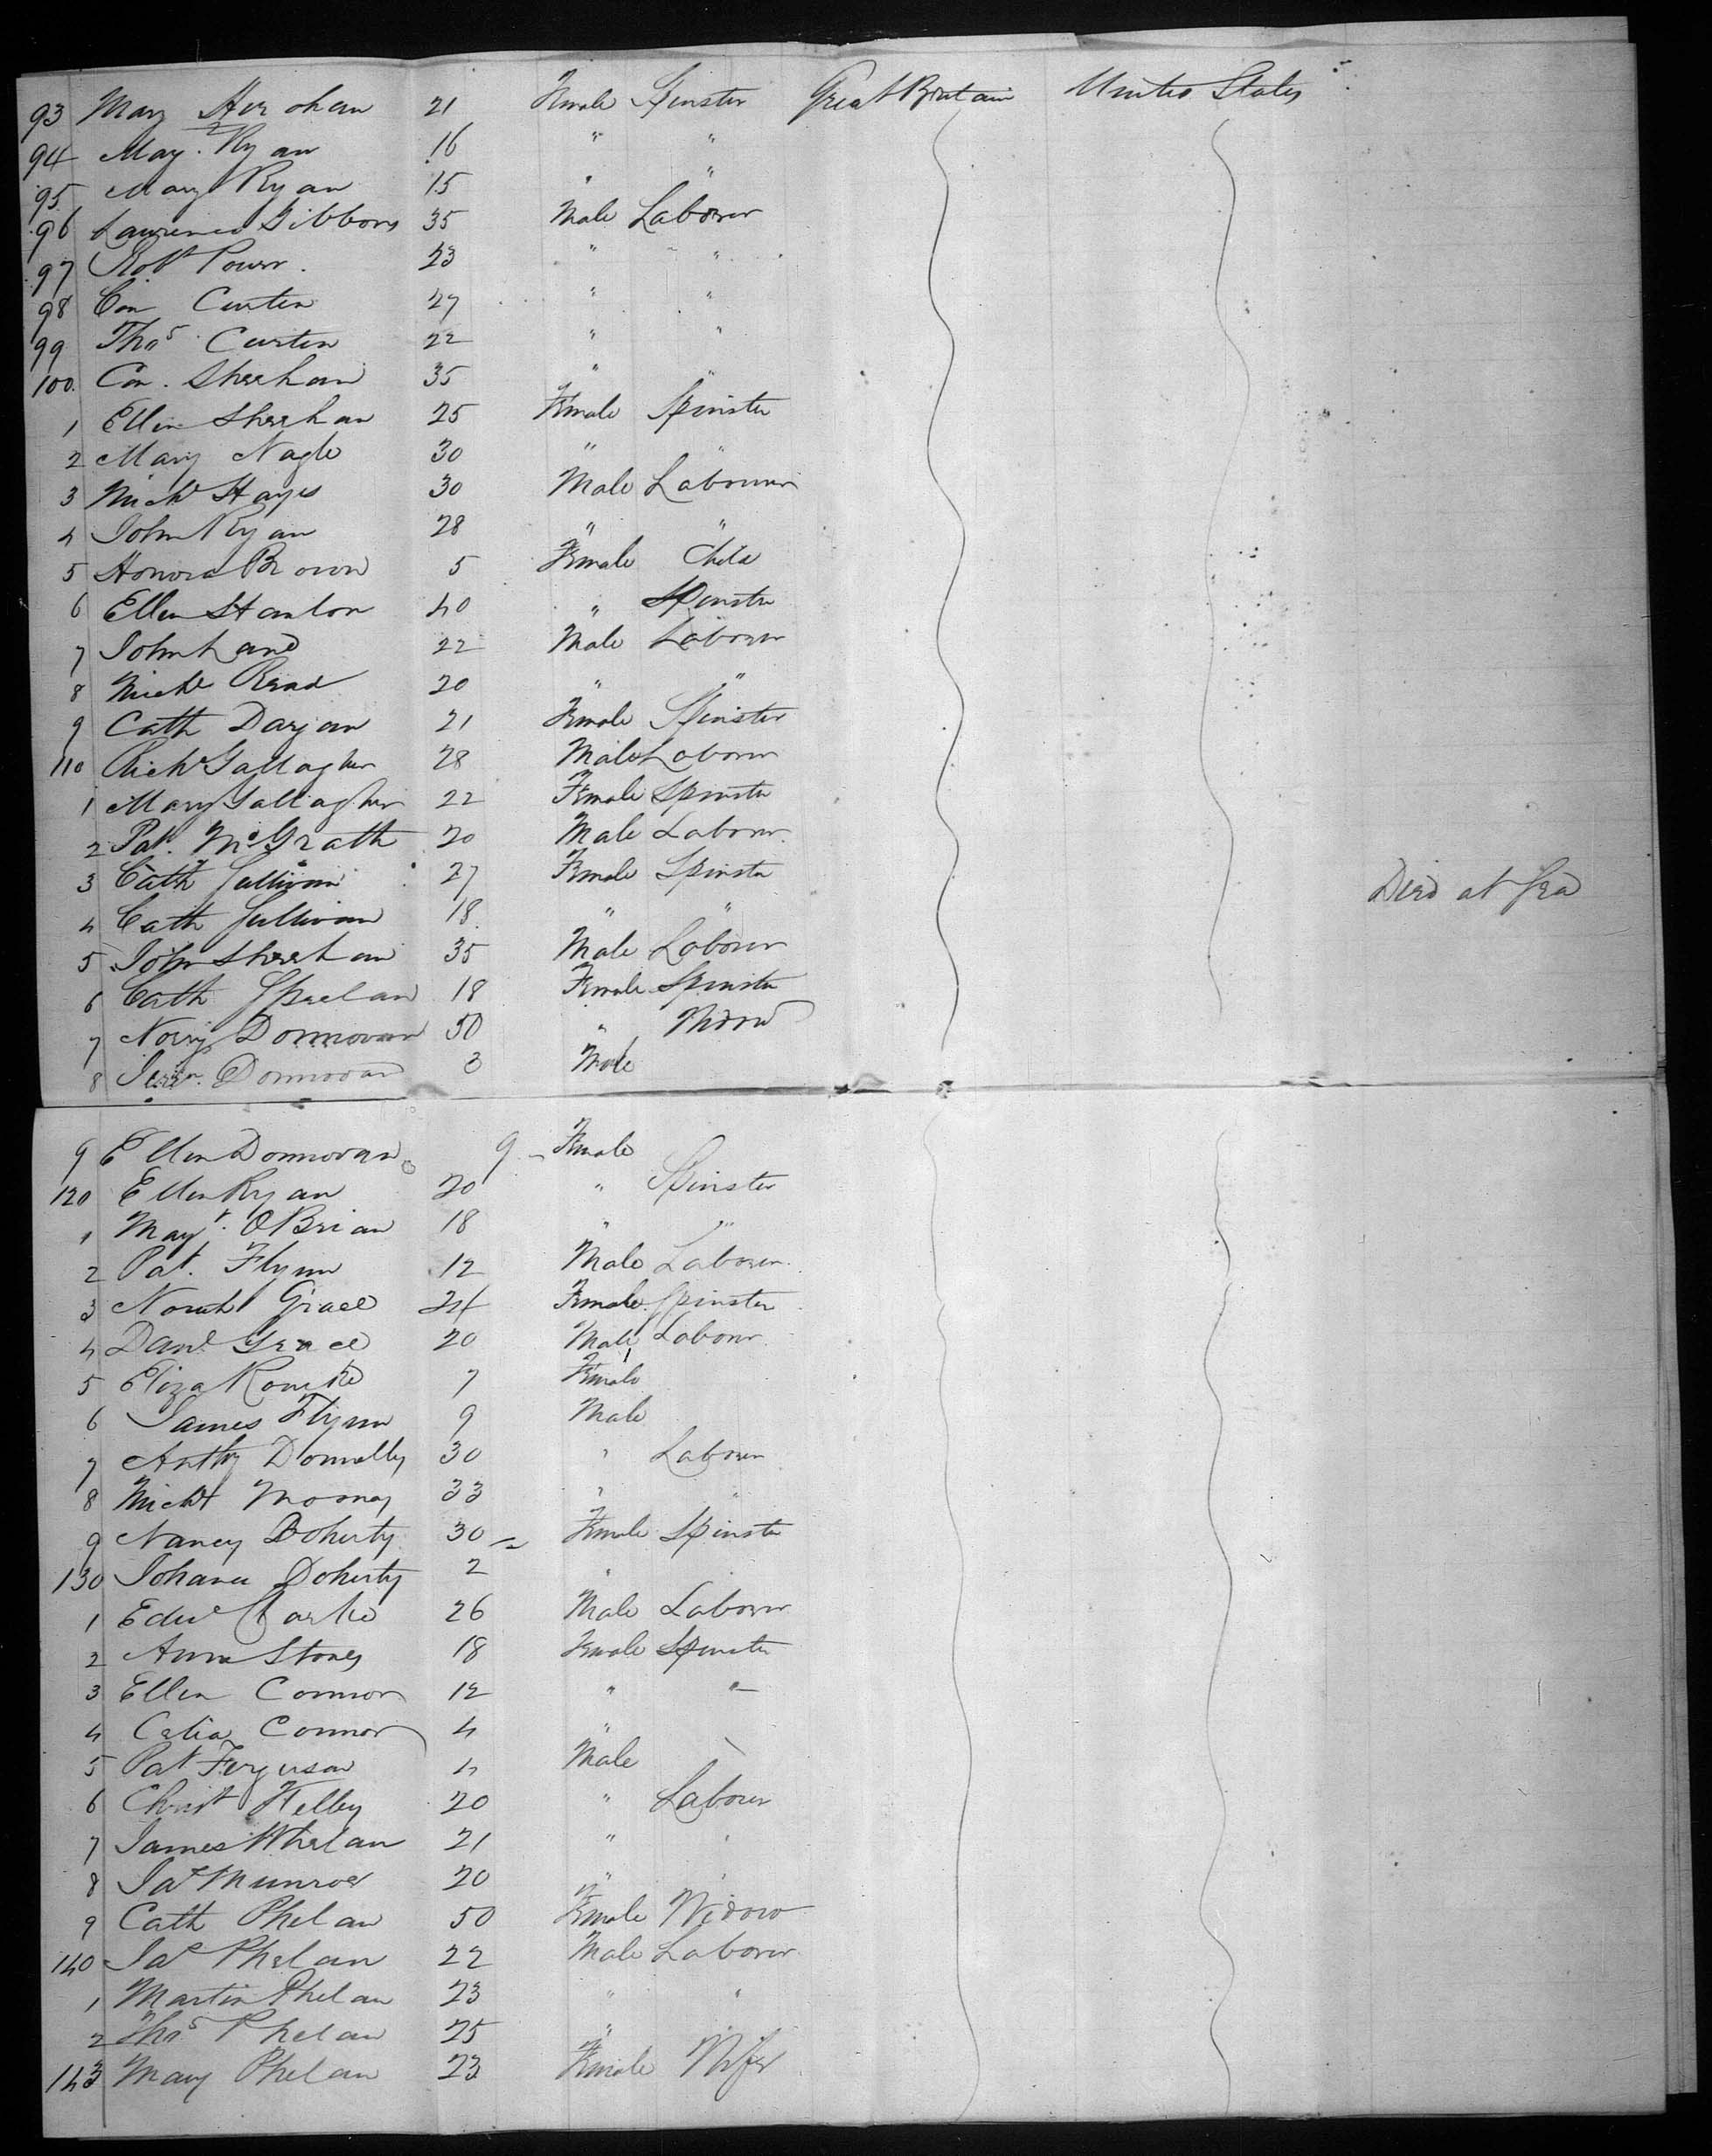 93 Mary Herohan 21 Female Spinster Great Britain United States
94 Mary Ryan 16 " "
95 Mary Ryan 15 " "
96 Laurence Gibbons 35 Male Laborer
97 Robt Power 23 " "
98 Con Curten 27 " "
99 Thos Curten 22 " "
100 Con. Sheehan 35 " "
1 Ellen Sheehan 25 Female Spinster
2 Mary Nagle 30 " "
3 Michl Hayes 30 Male Labourer
4 John Ryan 28 " "
5 Honora Brown 5 Female Child
6 Ellen Stanton 40 " Spinster
7 John Lane 22 Male Laborer
8 Michl Read 20 " "
9 Cath Dargan 21 Female Spinster
110 Richd Gallagher 28 Male Laborer
1 Mary Gallagher 22 Female Spinster
2 Pat. McGrath 20 Male Laborer
3 Cath Sullivan 27 Female Spinster Died at Sea
4 Cath Sullivan 18 " "
5 John Sheehan 35 Male Laborer
6 Cath Phelan 18 Female Spinster
7 Norry Donnovan 50 " Widow
8 Donnovan 3 Male
9 Ellen Donnovan 9 Female
120 Ellen Ryan 20 " Spinster
1 Mayt. OBrian 18 " "
2 Pat. Flynn 12 Male Laborer
3 Grace 24 Female Spinster
4 Danl Grace 20 Male Laborer
5 Eliza 7 Female
6 James Flynn 9 Male
7 Anthy Donnelly 30 " Laborer
8 Michl Mooney 33 " "
9 Nancy Doherty 30 Female Spinster
130 Johana Doherty 2 "
1 Edwd Clarke 26 Male Laborer
2 Anna Stones 18 Female Spinster
3 Ellen Connor 12 " "
4 Celia Connor 4 "
5 Pat Ferguson 4 Male
6 Christ Kelly 20 " Laborer
7 James Whelan 21 " "
8 Jas Munroe 20 " "
9 Cath Phelan 50 Female Widow
140 Jas Phelan 22 Male Laborer
1 Martin Phelan 23 " "
2 Thos Phelan 25 "
143 Mary Phelan 23 Female Wife